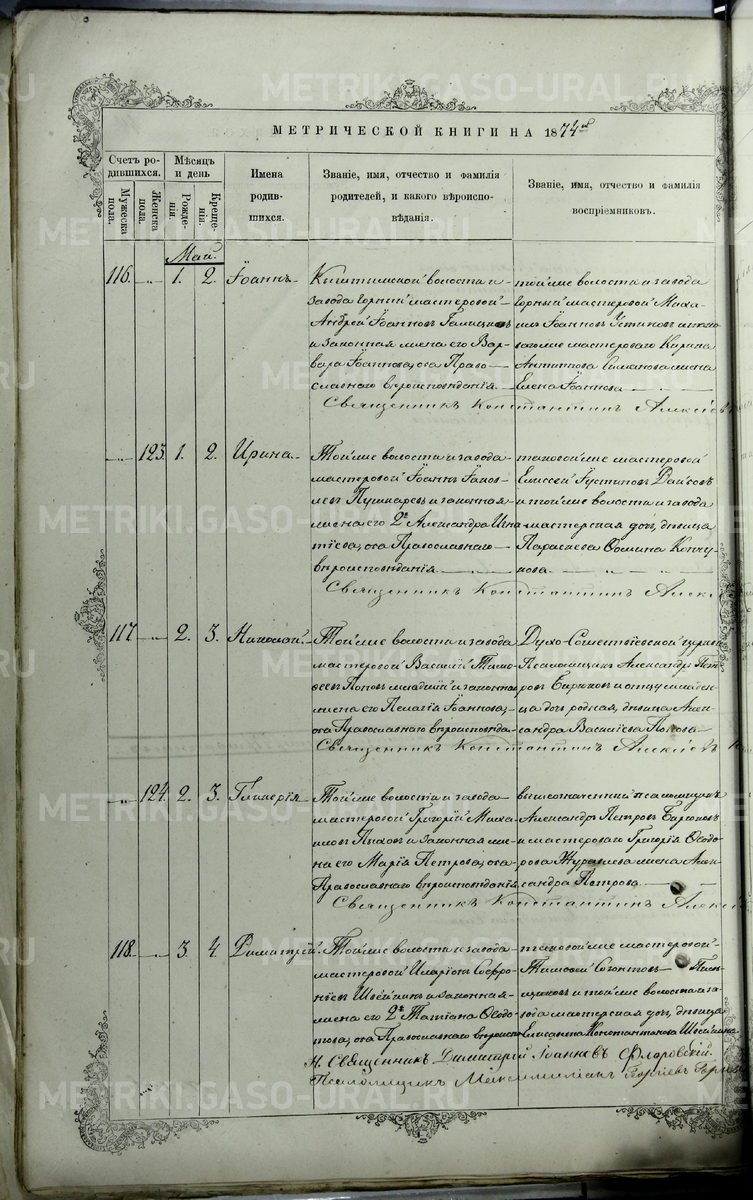 МЕТРИЧЕСКОЙ КНИГИ НА 1874й
Счетъ родившихся.
Мужеска пола.
Женска пола.
Мѣсяцъ и день
Рожденія.
Крещенія.
Имена родившихся.
Званіе, имя, отчество и фамилія родителей, и какого вѣроисповѣданія.
Званіе, имя, отчество и фамилія воспріемниковъ.
Май.
116. 1. 2. Іоаннъ
Кыштымской волости и
завода горный мастеровой
Андрей Іоанновъ
и законная жена его Вар-
вара Іоаннова, оба Право-
славнаго вѣроисповѣданія
той же волости и завода
горный мастеровой Миха-
илъ Іоанновъ Устиновъ и
мастероваго Кирила
Антипова жена
Елена Іоаннова
Священникъ Константинъ Алексіевъ
123. 1. 2. Ирина
Той же волости и завода
мастеровой Іоаннъ Іаков-
левъ Пушкаревъ и законная
жена его 2я Александра Игна-
тіева, оба Православнаго
вѣроисповѣданія
таковой же мастеровой
Елисей Іустиновъ
и той же волости и завода
мастерская дочь, дѣвица
Параскева Фомина
Священникъ Константинъ
117. 2. 3. Николай
Той же волости и завода
мастеровой Василій Тимо-
феевъ Поповъ младшій и законная
жена его Пелагія Іоаннова,
оба Православнаго вѣроисповѣда
Духо-Сошественской церкви
Псаломщикъ Александръ Пет-
ровъ Бирюковъ и отцу младен-
ца дочь родная, дѣвица Алек-
сандра Василіева Попова
Священникъ Константинъ Алексіевъ
124. 2. 3. Гликерія
Той же волости и завода
мастеровой Григорій Миха-
иловъ и законная же-
на его Марія Петрова, оба
Православнаго вѣроисповѣданія
вышеозначенный псаломщикъ
Александръ Петровъ Бирюковъ
и мастероваго Григорія Ѳеодо-
рова Журавлева жена Алек-
сандра Петрова
Священникъ Константинъ
118. 3. 4. Димитрій
Той же волости и завода
мастеровой Иларіонъ Софро-
ніевъ Швейкинъ и законная
жена его 2я Татіана Ѳеодо-
това, оба Православнаго вѣроиспо
таковой же мастеровой
Тимофей Созонтовъ
и той же волости и за-
вода мастерская дочь, дѣвица
Елисавета Константинова Швейкина
И. Священникъ Димитрій Іоанновъ Флоровскій
Псаломщикъ Максимиліанъ Георгіевъ
METRIKI.GASO-URAL.RU